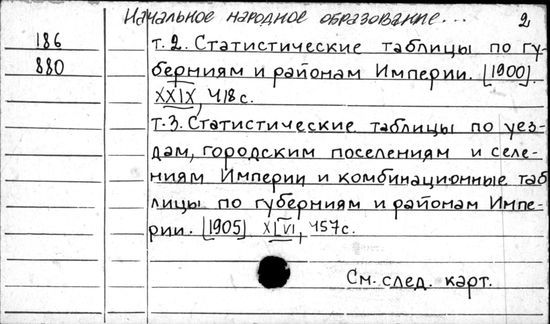 Начальное народное образование... 2
186
880
т. 2. Статистические таблицы по гу-
берниям и районам Империи. [1900].
XXIX, 418 с.
т. 3. Статистические таблицы по уез-
дам, городским поселениям и селе-
ниям Империи и комбинационные таб
лицы по губерниям и районам Импе-
рии. [1905] XLVI, 457 с.
См. след. карт.